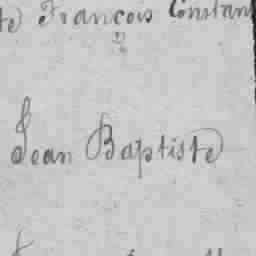 François Constan
Jean Baptiste